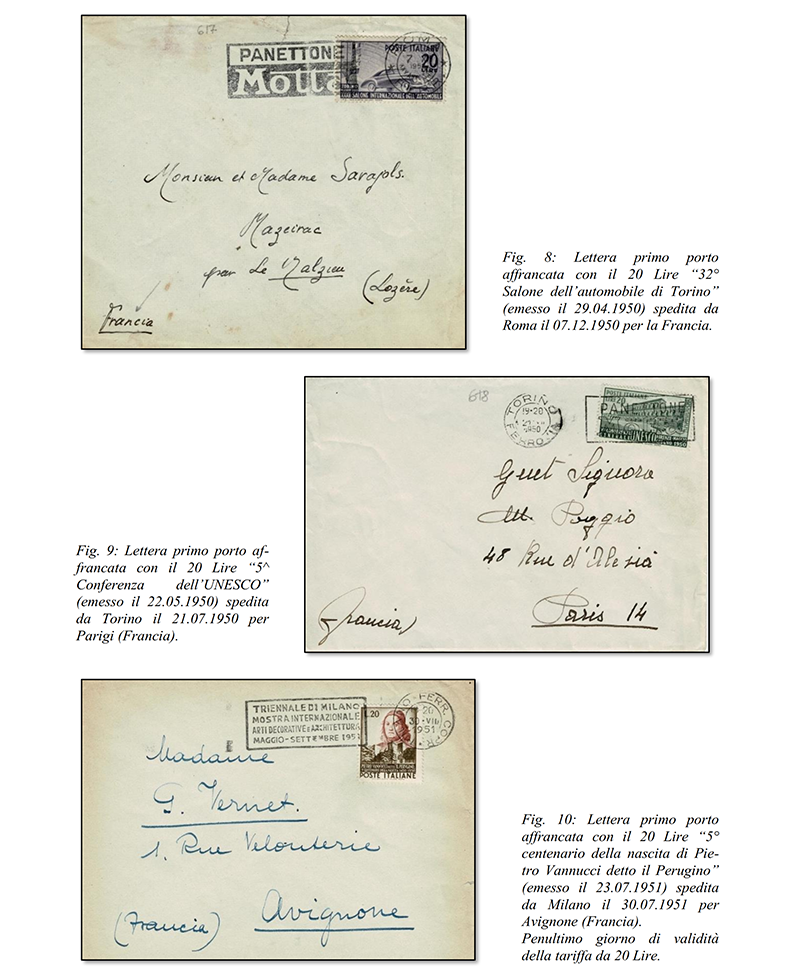 617
PANETTONE
Motta
POSTE ITALIANE
20
LIRE
SALONE INTERNAZIONALE DELL'AUTOMOBILE
Monsieur et Madame Sarajols.
Mazeirac
par Le Malzieu
(Lozère)
Francia
Fig. 8: Lettera primo porto
affrancata con il 20 Lire “32°
Salone dell’automobile di Torino”
(emesso il 29.04.1950) spedita da
Roma il 07.12.1950 per la Francia.
618
TORINO
19-20
1950
FERROVIA
POSTE ITALIANE
LIRE 20
PANETTONE
UNESCO
Gent Signora
M. Poggio
48 Rue d'Alesia
Paris 14
(Francia)
Fig. 9: Lettera primo porto af-
francata con il 20 Lire “5^
Conferenza dell’UNESCO”
(emesso il 22.05.1950) spedita
da Torino il 21.07.1950 per
Parigi (Francia).
TRIENNALE DI MILANO
MOSTRA INTERNAZIONALE
ARTI DECORATIVE E ARCHITETTURA
MAGGIO-SETTEMBRE 1951
L.20
POSTE ITALIANE
FERR. CORR.
20
30·VII
1951
Madame
G. Vernet.
1. Rue Velouterie
Avignone
(Francia)
Fig. 10: Lettera primo porto
affrancata con il 20 Lire “5°
centenario della nascita di Pie-
tro Vannucci detto il Perugino”
(emesso il 23.07.1951) spedita
da Milano il 30.07.1951 per
Avignone (Francia).
Penultimo giorno di validità
della tariffa da 20 Lire.